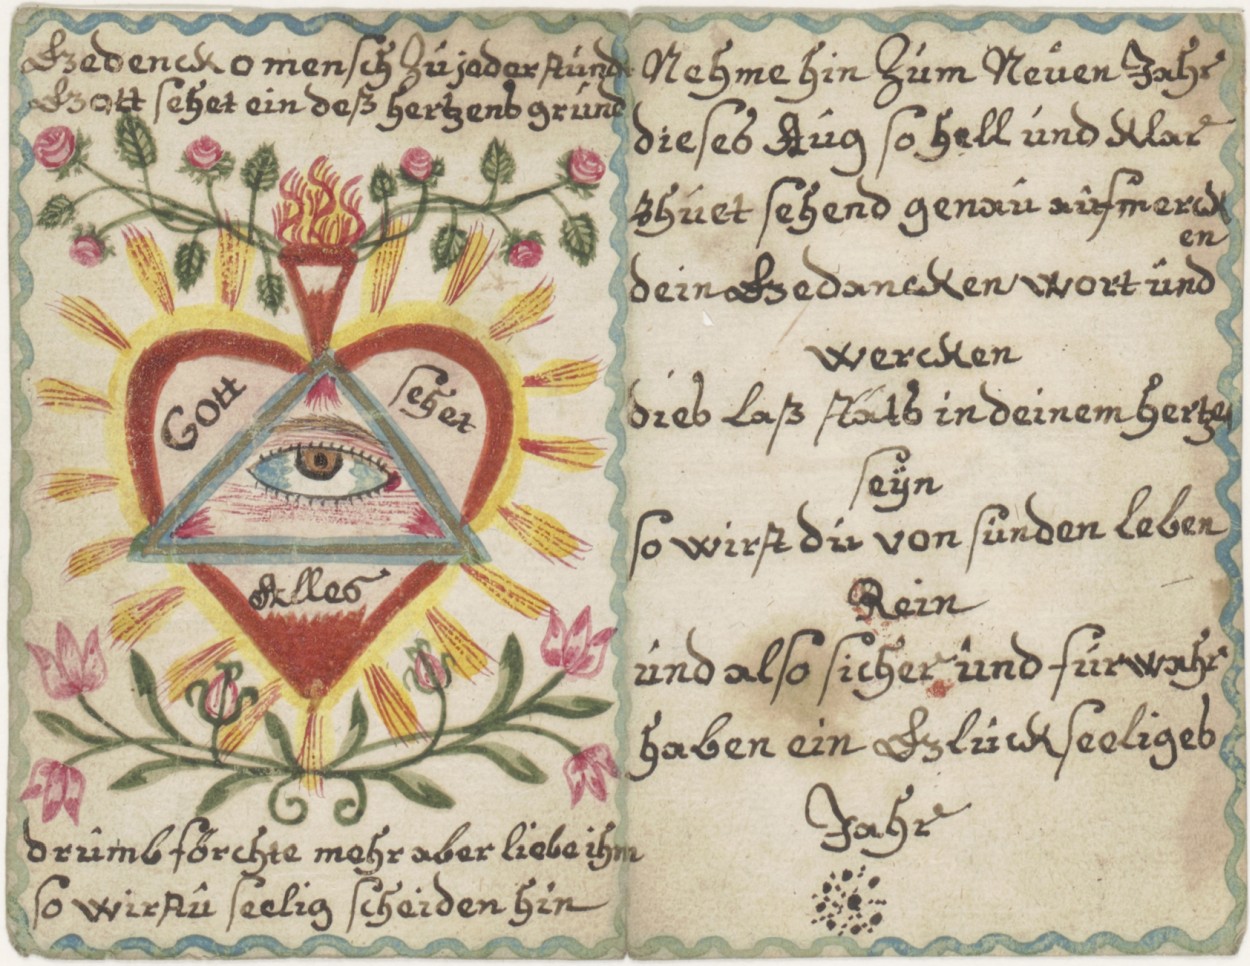 Gedenck o mensch Zu jeder stund
Gott sehet ein deß hertzens grund
Gott
sehet
Alles
drumb förchte mehr aber liebe ihm
so wirstu seelig scheiden hin
Nehme hin Zum Neuen Jahr
dieses Aug so hell und klar
thuet sehend genau aufmerck
en
dein Gedancken wort und
wercken
dies laß stäts in deinem hertze
seÿn
so wirst du von sünden leben
Rein
und also sicher und fürwahr
haben ein Glückseeliges
Jahr